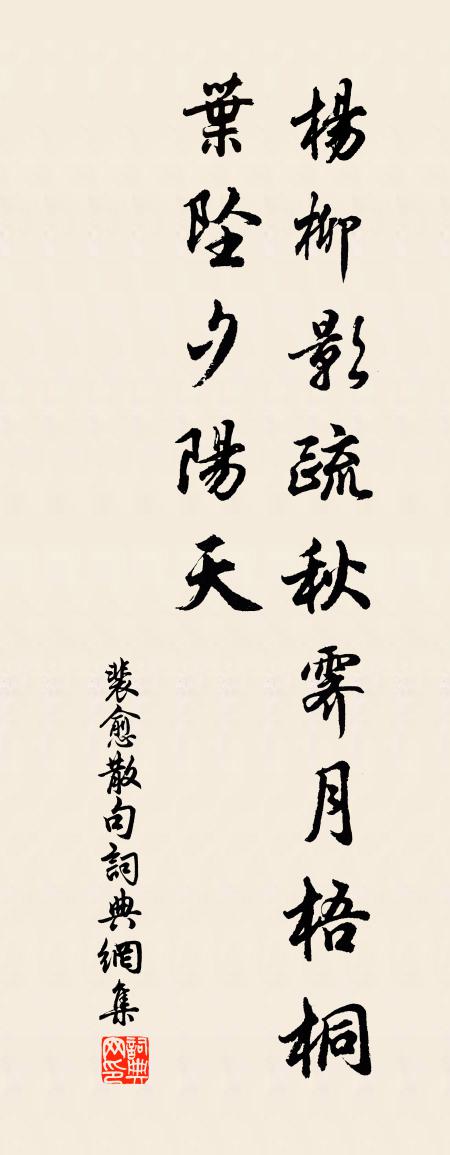 楊柳影疏秋霽月梧桐
葉墜夕陽天
裴愈散句詞典網集
詞典网印